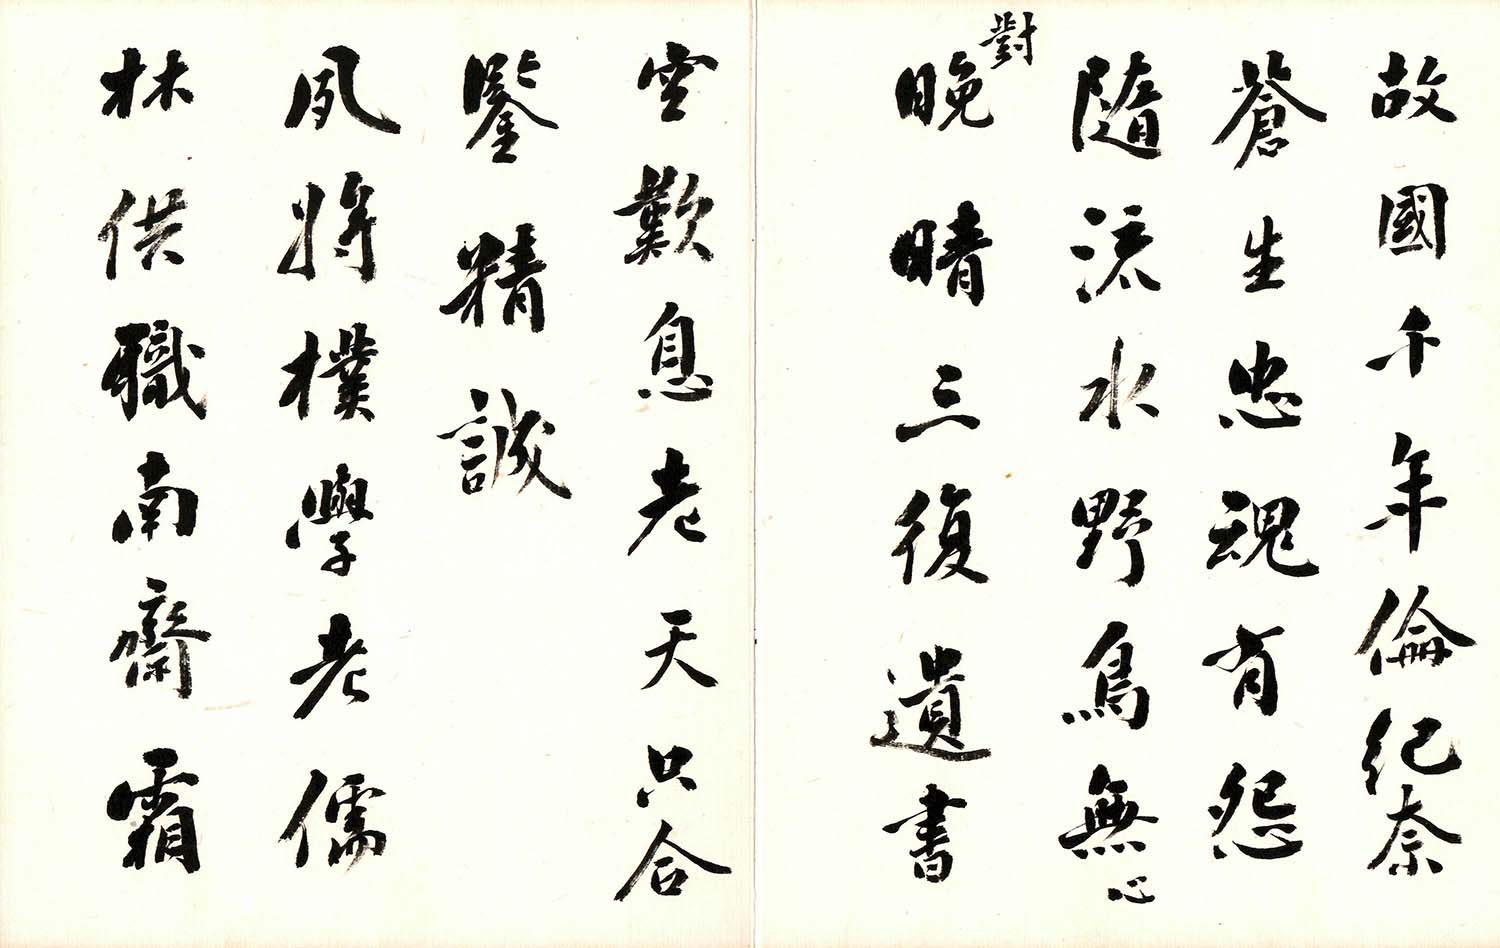 故國千年倫紀奈
蒼生忠魂有怨
隨流水野鳥無心
對晚晴三復遺書
空歎息老天只合
鑒精誠
夙將樸學老儒
林供職南齋霜